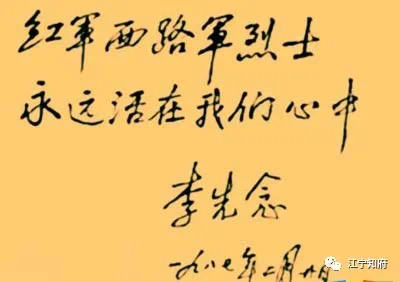 红軍西路軍烈士
永远活在我们心中
李先念
一九八七年二月廿日
江宁知府